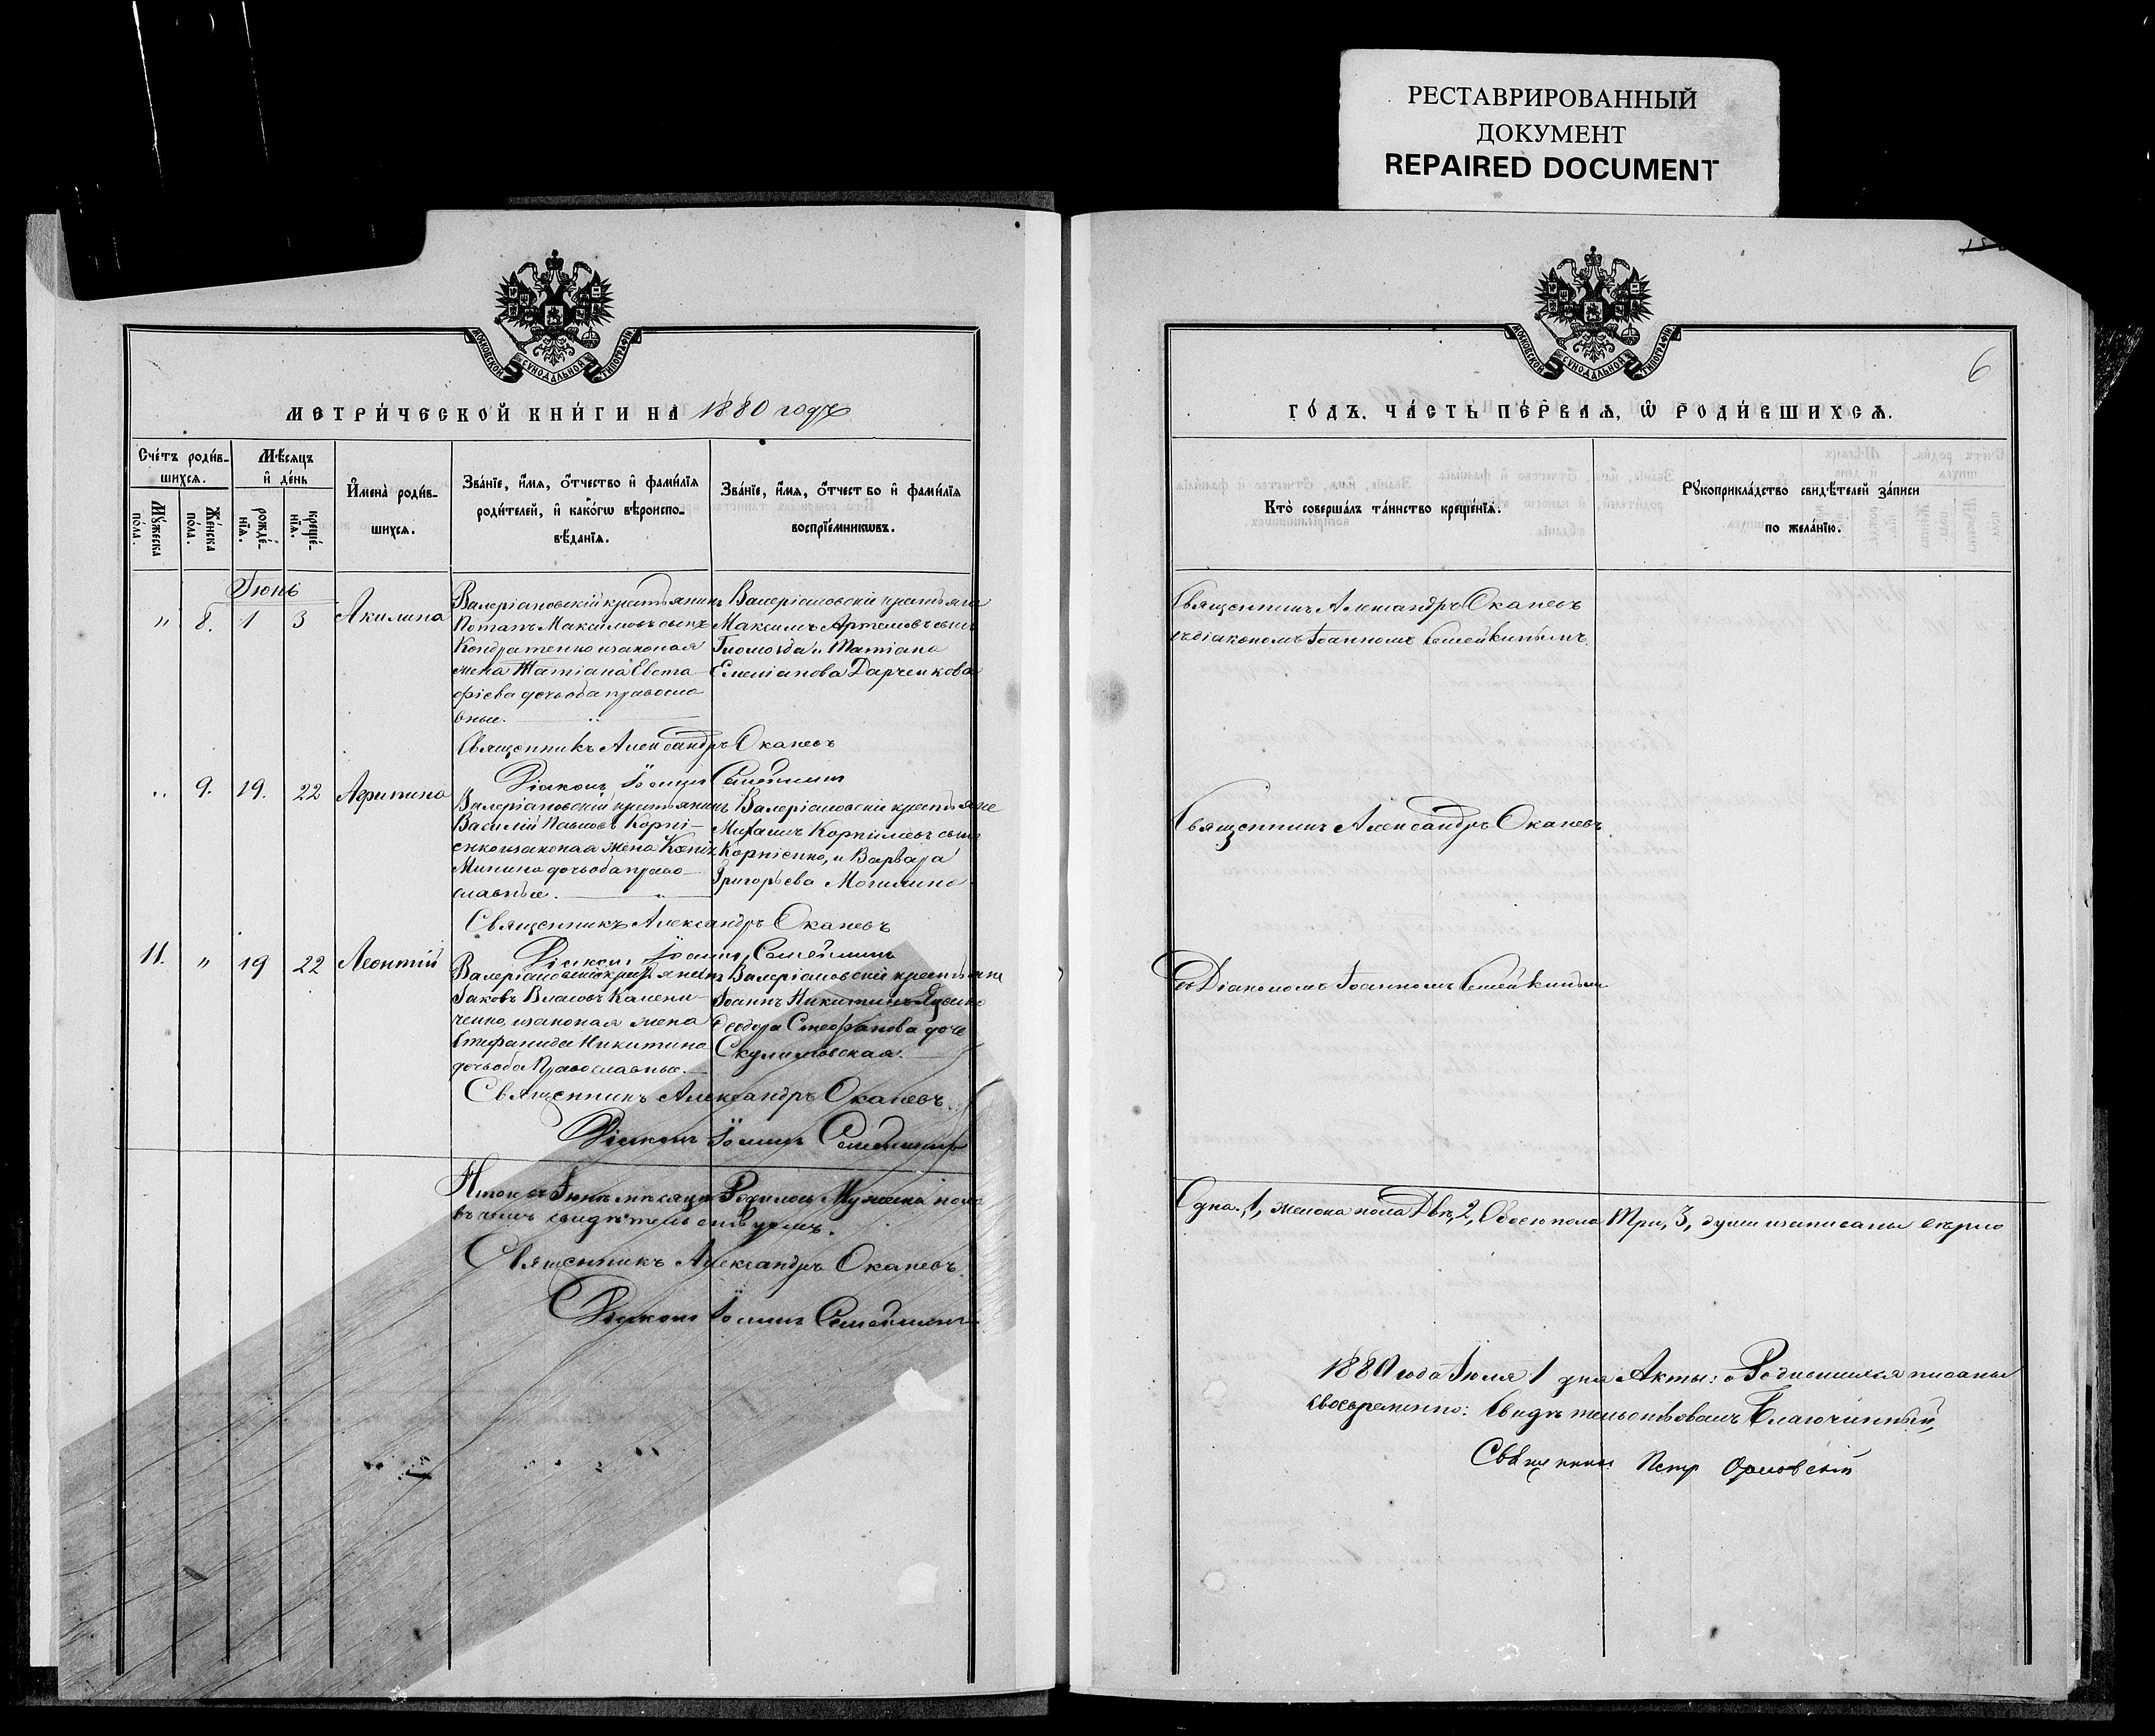 РЕСТАВРИРОВАННЫЙ
ДОКУМЕНТ
REPAIRED DOCUMENT
МОСКОВСКОЙ СѴНОДАЛЬНОЙ ТИПОГРАФИИ
МЕТРИ́ЧЕСКОЙ КНИ́ГИ НА 1880 годъ
Сче́тъ роди́в-
шихсѧ.
Мꙋ́жеска по́ла.
Же́нска по́ла.
Мѣ́сѧцъ
и҆ де́нь
рожде́-нїѧ.
креще́-нїѧ.
И҆мена̀ роди́в-
шихсѧ.
Зва́нїе, и҆́мѧ, ѻ҆́тчество и҆ фами́лїѧ
роди́телей, и҆ како́гѡ вѣроиспо-
вѣ́данїѧ.
Зва́нїе, и҆́мѧ, ѻ҆́тчество и҆ фами́лїѧ
воспрїе́мникѡвъ.
Іюнь
" 8. 1 3 Акилина
Валеріановскій крестьянинъ
Потапъ Максимовъ сынъ
Кондратенко и законая
жена Татіана Евста-
фіева дочь оба правосла
вные.
Валеріановскіе крестьяне
Максимъ Артемовъ сынъ
и Татіана
Емеліанова Дарченкова
Священникъ Александръ Оканевъ
Діаконъ Іоаннъ Семейкинъ
" 9. 19. 22 Агрипина
Валеріановскій крестьянинъ
Василій Павловъ Корні-
енко и законая жена
Минина дочь оба право-
славные.
Валеріановскіе крестьяне
Михаилъ Корниліевъ сынъ
Корніенко, и Варвара
Григорьева
Священникъ Александръ Оканевъ
Діаконъ Іоаннъ Семейкинъ
11. " 19 22 Леонтій
Валеріановскій крестьянинъ
Іаковъ Власовъ Калени-
ченко, и законая жена
Стефанида Никитина
дочь оба Православные.
Валеріановскіе крестьяне
Іоаннъ Никитинъ
Ѳеодора Стефанова дочь
Скулимовская.
Священникъ Александръ Оканевъ
Діаконъ Іоаннъ Семейкинъ
Итого въ Іюнѣ мѣсяцѣ Родилось Мужеска пола
въ чемъ свидѣтельствуемъ.
Священникъ Александръ Оканевъ
Діаконъ Іоаннъ Семейкинъ
6
МОСКОВСКОЙ СѴНОДАЛЬНОЙ ТИПОГРАФИИ
ГО́ДЪ. ЧА́СТЬ ПЕ́РВАѦ, Ѡ҆ РОДИ́ВШИХСѦ.
Кто̀ соверша́лъ та́инство креще́нїѧ.
Рꙋкоприкла́дство свидѣ́телей за́писи
по жела́нїю.
Священникъ Александръ Оканевъ
съ діакономъ Іоанномъ Семейкинымъ
Священникъ Александръ Оканевъ
съ Діакономъ Іоанномъ Семейкинымъ
Одна. 1, женска пола Двѣ, 2, Обоего пола Три, 3, души и записаны вѣрно
1880 года Іюля 1 дня Акты: о Родившихся писаны
своевременно: Свидѣтельствовалъ Благочинный,
Священникъ Петр Орловскій